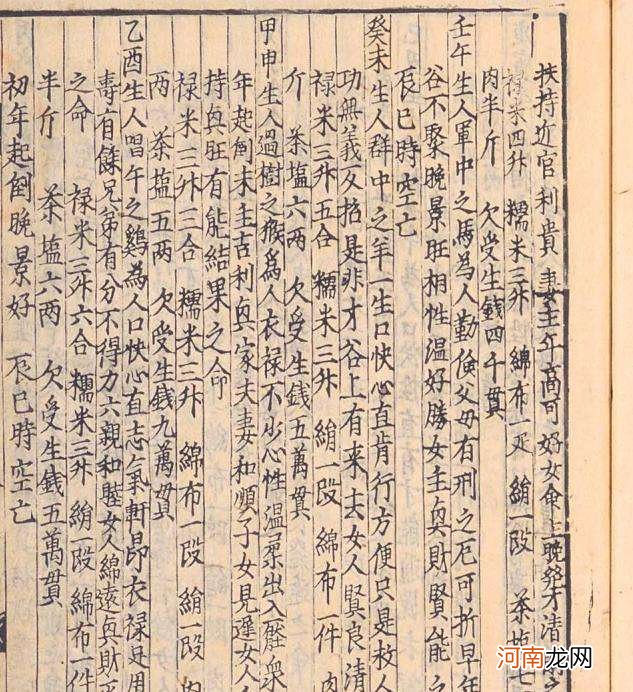 扶持近官利貴妻主年高可好女命主晚發才清
禄米四升 糯米三升 綿布一疋 絹一段 茶塩七
肉半斤 欠受生錢四千貫
壬午生人軍中之馬為人勤儉父母有刑之厄可折早年
谷不聚晚景旺相性温好勝女主興財賢能之
辰巳時空亡
癸未生人群中之羊一生口快心直肯行方便只是救人
功無義反招是非才谷上有来去女人賢良清
禄米三升五合 糯米三升 絹一段 綿布一件 肉
介 茶塩六两 欠受生錢五萬貫
甲申生人過樹之猴為人衣禄不少心性温柔出入壓衆
年起倒末主吉利興家夫妻和順子女見遲女人
持興旺有能結果之命
禄米三升三合 糯米三升 綿布一段 絹一段 肉
两 茶塩五两 欠受生錢九萬貫
乙酉生人唱午之鷄為人口快心直志氣軒昂衣禄足用
壽有餘兄弟有分不得力六親和睦女人綿遠興財
之命 禄米三升六合 糯米三升 絹一段 綿布一件
半斤 茶塩六两 欠受生錢五萬貫
初年起倒晚景好 辰巳時空亡
㊣河南龙网